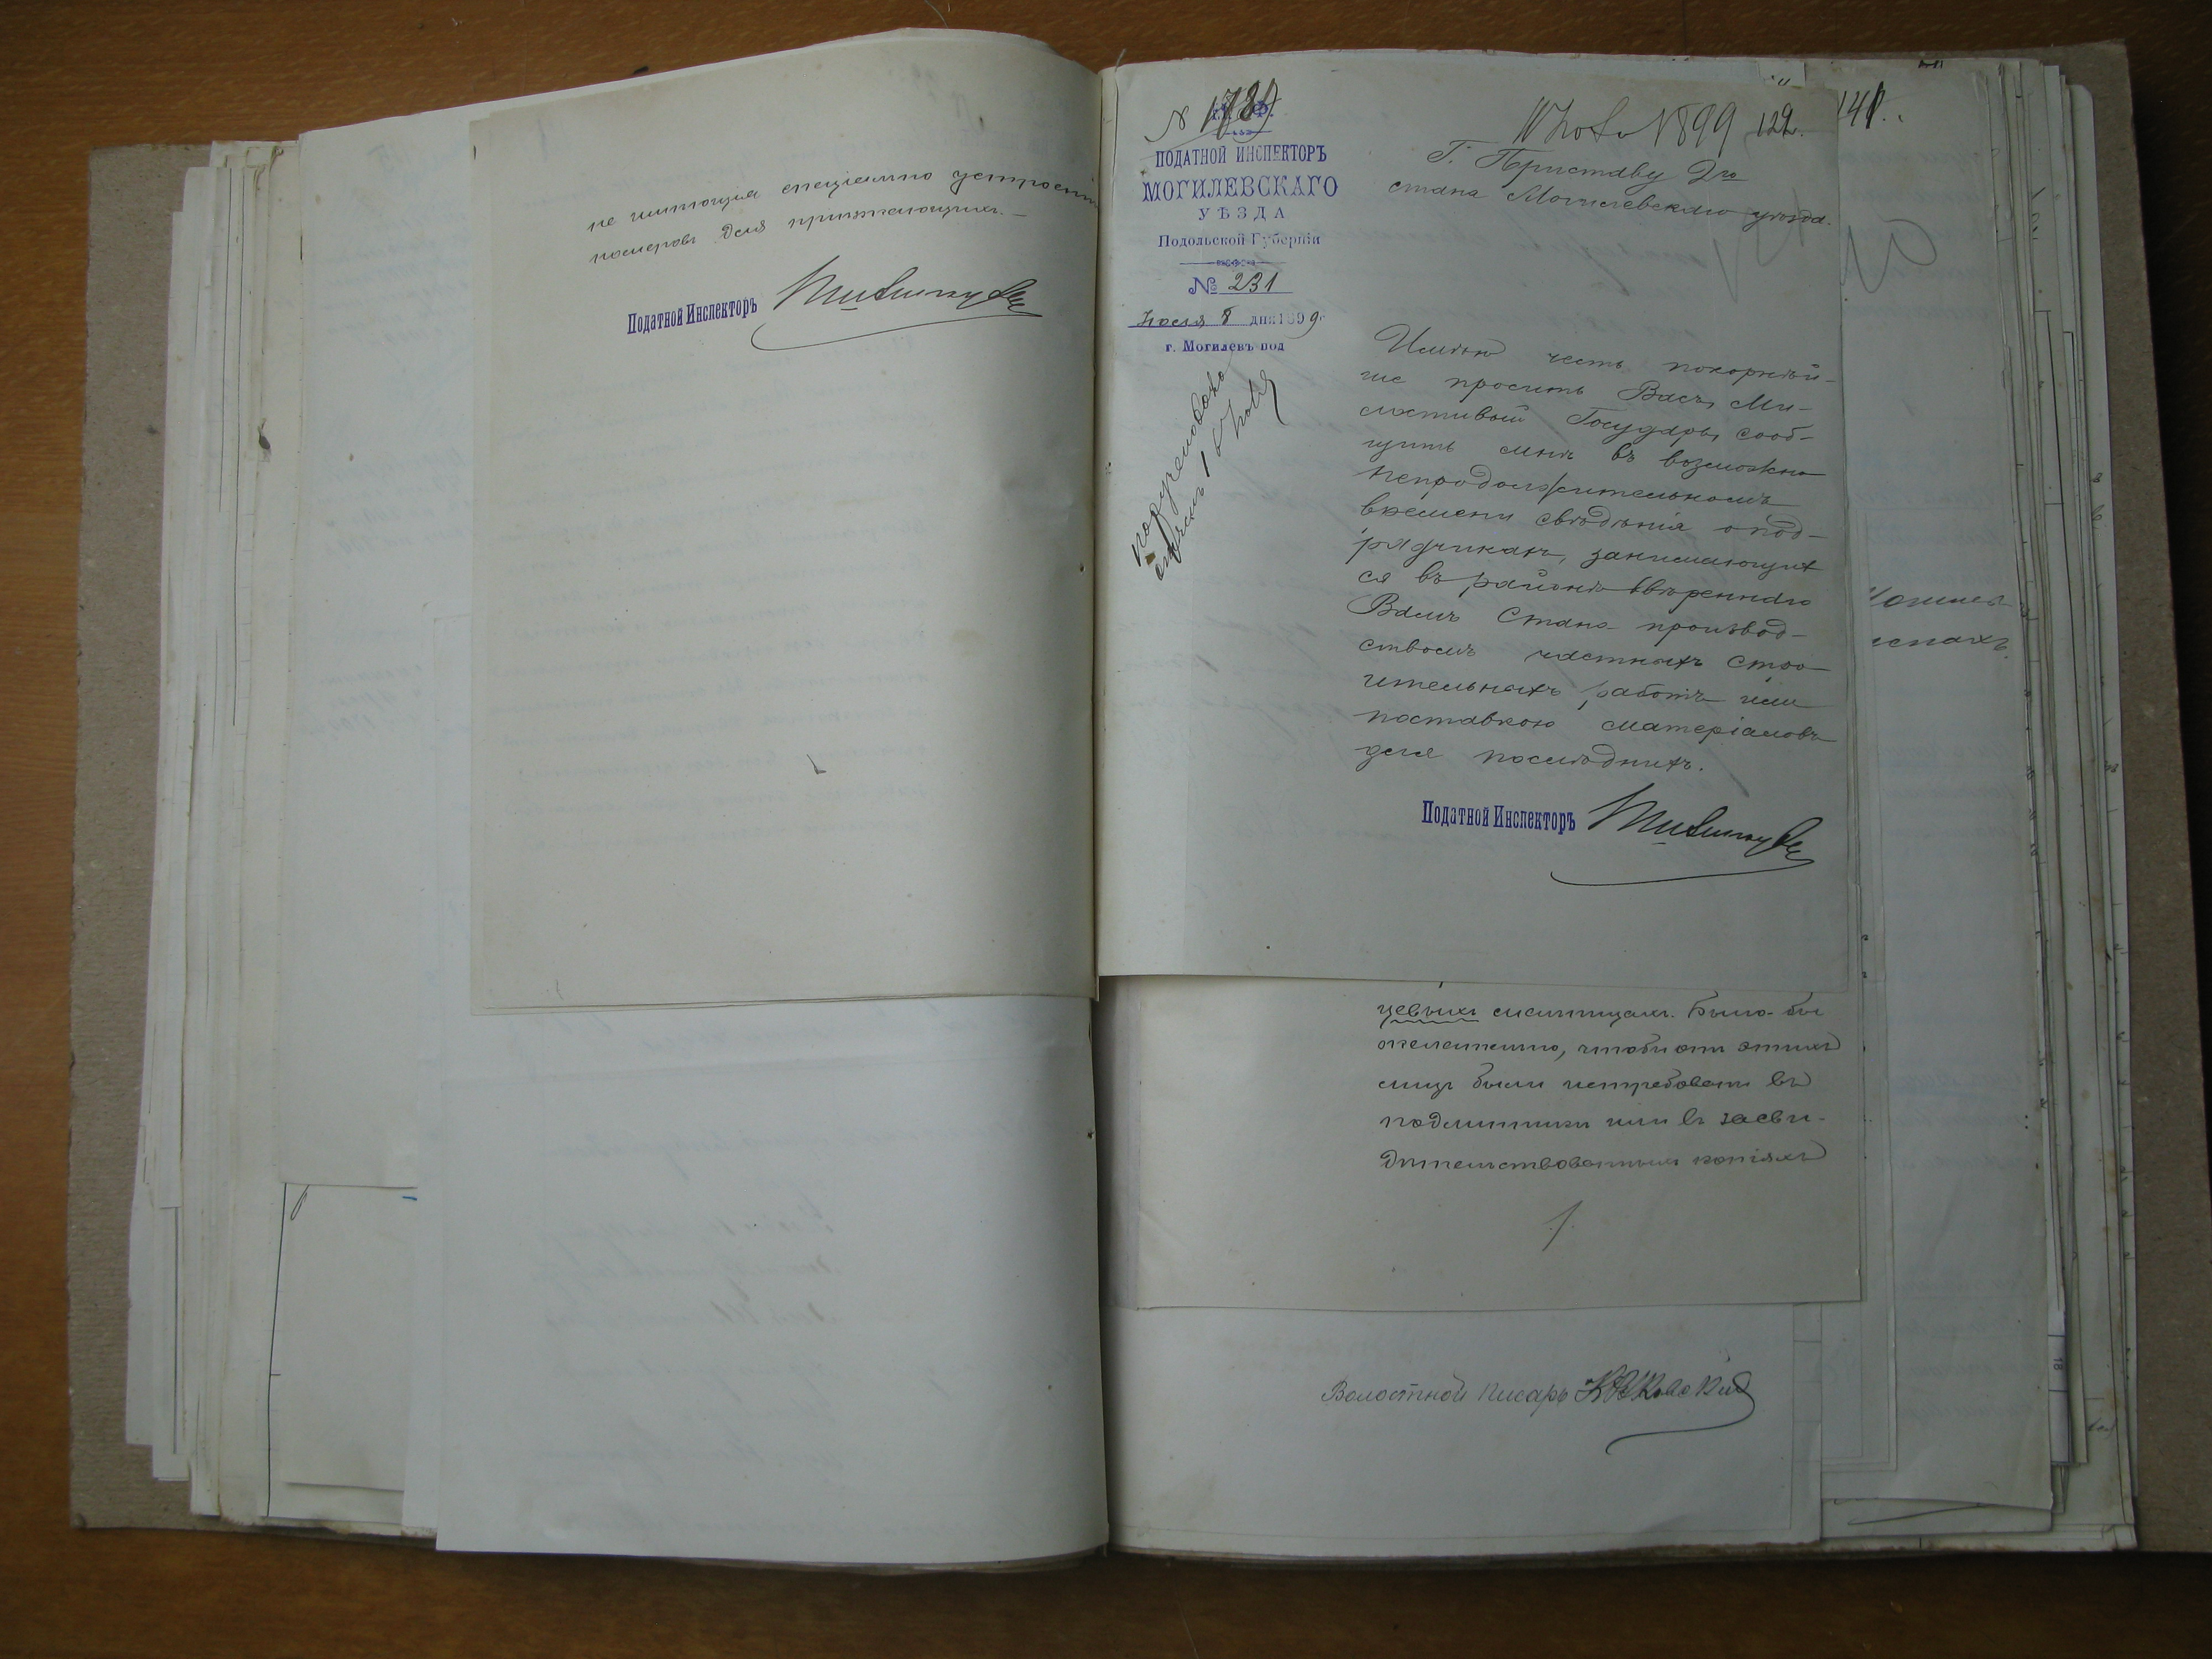 не имѣющія спеціально устроенн
номеровъ для пріѣзжающихъ.—
Податной Инспекторъ
N 1789
М. Ф.
ПОДАТНОЙ ИНСПЕКТОРЪ
МОГИЛЕВСКАГО
УѢЗДА
Подольской Губерніи
№ 231
Іюля 8 дня 1899 г.
г. Могилевъ под
1899 122.
141.
Г. Приставу 2го
стана Могилевскаго уѣзда.
Имѣю честь покорнѣй-
ше просить Васъ, Ми-
лостивый Государь, сооб-
щить мнѣ въ возможно
непродолжительномъ
времени свѣдѣнія о под-
рядчикахъ, занимающих
ся въ районѣ ввѣреннаго
Вамъ Стана производ-
ствомъ частныхъ строи
ительныхъ работъ или
поставкою матеріаловъ
для послѣднихъ.
Податной Инспекторъ
цевыхъ Было-бы
желательно, чтобы отъ этихъ
лицъ были истребованы въ
подлинники или въ засви-
дѣтельствованныхъ копіяхъ
Волостной Писарь